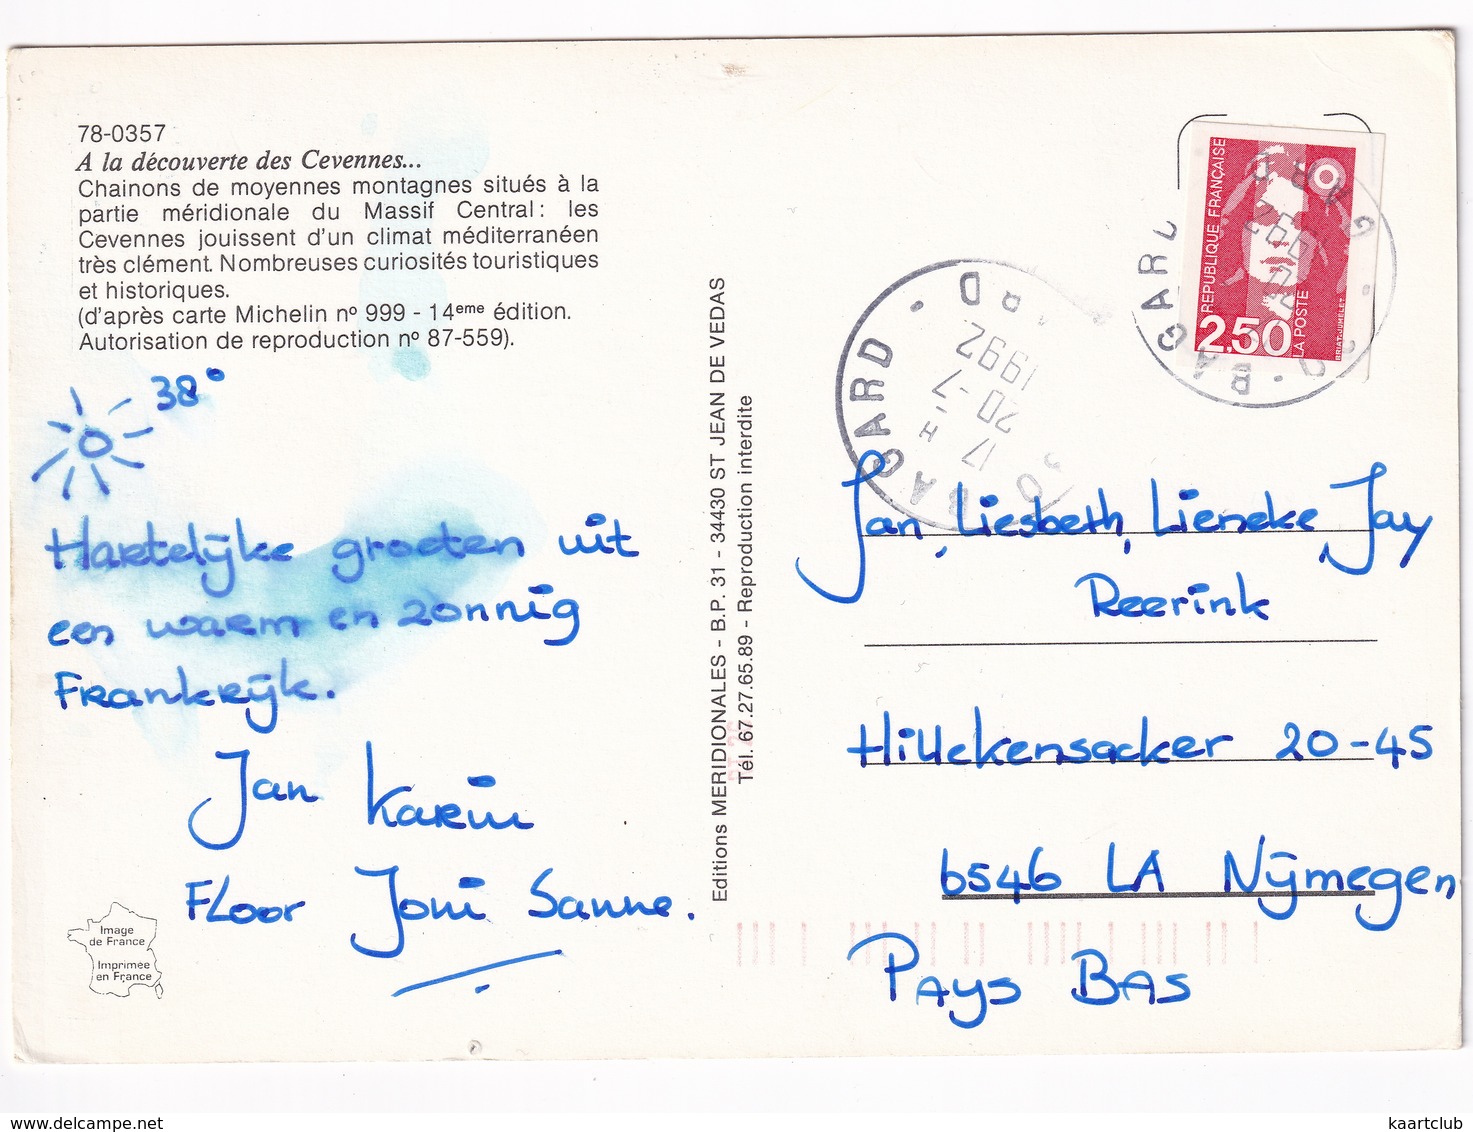 78-0357
A la découverte des Cevennes...
Chainons de moyennes montagnes situés à la
partie méridionale du Massif Central: les
Cevennes jouissent d'un climat méditerranéen
très clément. Nombreuses curiosités touristiques
et historiques.
(d'après carte Michelin nº 999 - 14eme édition.
Autorisation de reproduction nº 87-559).
38°
Hartelijke groeten uit
een warm en zonnig
Frankrijk.
Jan Karin
Floor Joni Sanne.
Image
de France
Imprimée
en France
Editions MERIDIONALES - B.P. 31 - 34430 ST JEAN DE VEDAS
Tél. 67.27.65.89 - Reproduction interdite
BAGARD · GARD
17 H
20-7
1992
BAGARD · GARD
1992
REPUBLIQUE FRANÇAISE
2,50
LA POSTE
BRIAT-JUMELET
Jan, Liesbeth, Lieneke, Jay
Reerink
Hillekensacker 20-45
6546 LA Nijmegen
PAYS BAS
kaartclub